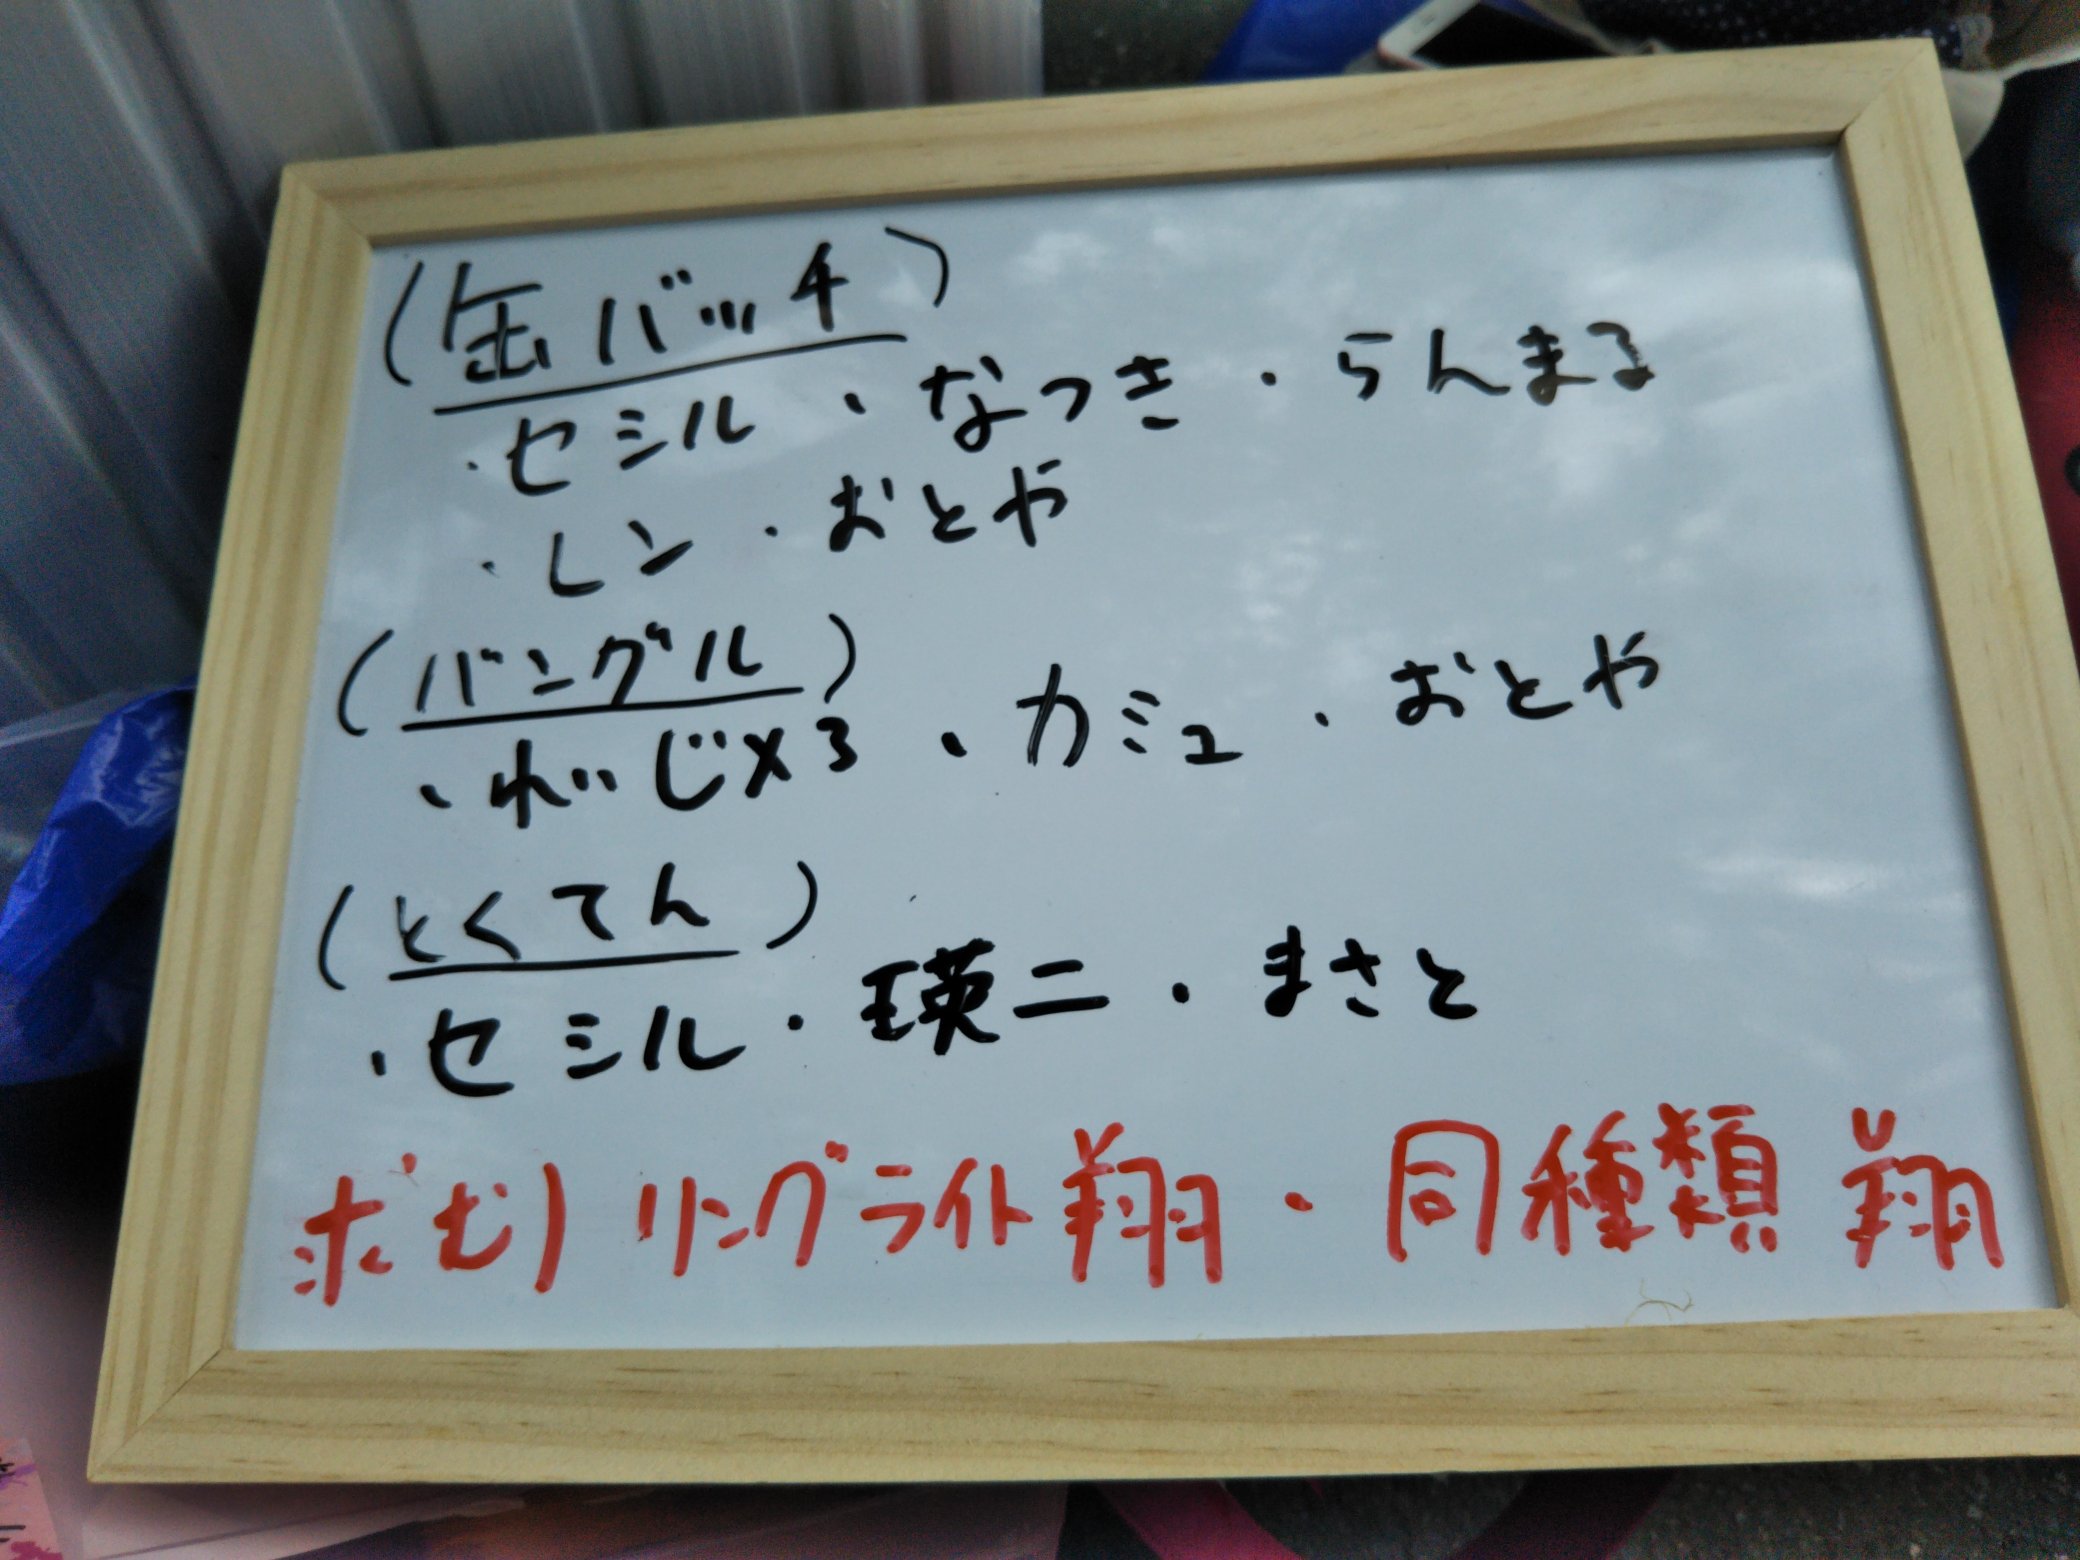 (缶バッチ)
・セシル・なつき・らんまる
・レン・おとや
(バングル)
・れいじ×3・カミュ・おとや
(とくてん)
・セシル・瑛二・まさと
求む) リングライト翔・同種類 翔